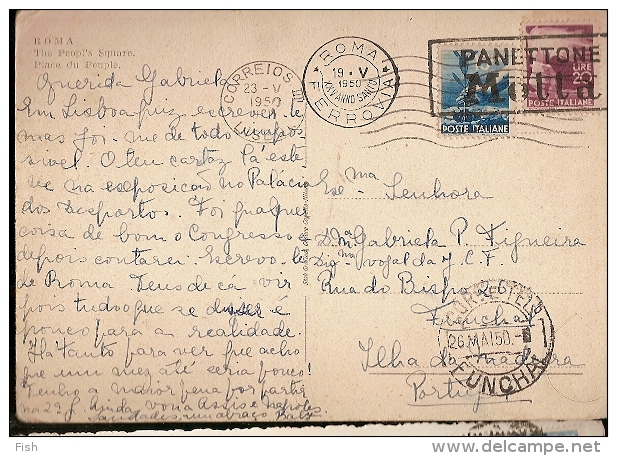 ROMA
The Peopl's Square.
Place du Peuple.
Querida Gabriela
Em Lisboa quiz escrever-te
mas foi-me de todo impos
sivel. O teu cartaz lá este
ve na exposição no Palácio
dos Desportos. Foi qualquer
coisa de bom o Congresso
depois contarei. Escrevo-te
de Roma. Tens de cá vir
pois tudo que se disser é
pouco para a realidade.
Há tanto para ver que acho
que um mez até seria pouco!
Tenho a maior pena por partir
na 2ª f. Ainda vou a Assis e Napoles
Saudades, um abraço
CORREIOS
23-V
1950
ROMA
FERROVIA
19-V
1950
ANNO SANTO
PANETTONE
Motta
POSTE ITALIANE
LIRE
20
POSTE ITALIANE
Exc.ma Senhora
D. M.a Gabriela P. Figueira
Dig.ma vogal da J.C.F.
Rua do Bispo
Funchal
Ilha da Madeira
Portugal
26 MAI 50
FUNCHAL
Fish
www.delcampe.net